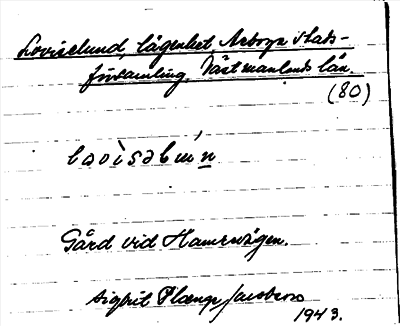 Loviselund, lägenhet, Arboga stads-
församling, Västmanlands län.
(80)
Gård vid Hamrevägen.
Sigbrit Plænge Jacobson
1943.